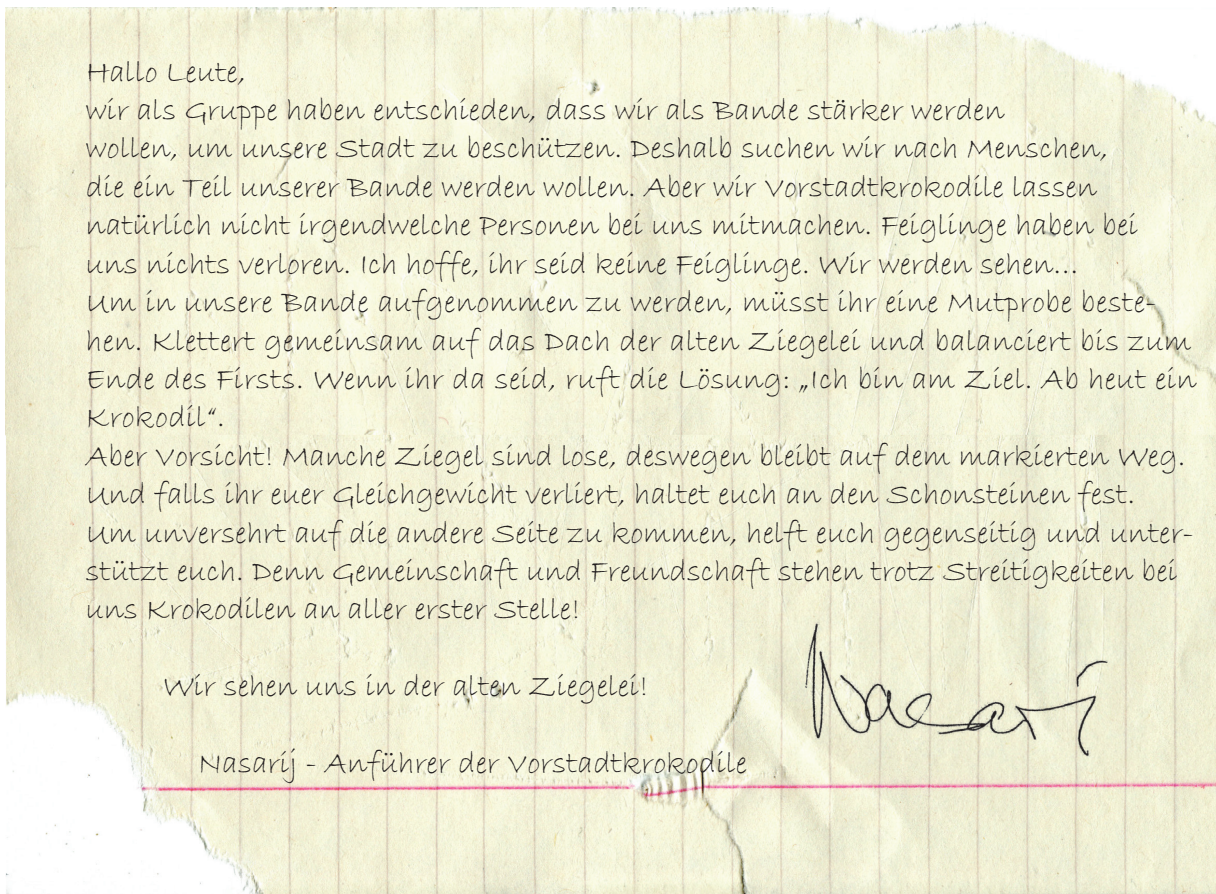 Hallo Leute,
wir als Gruppe haben entschieden, dass wir als Bande stärker werden
wollen, um unsere Stadt zu beschützen. Deshalb suchen wir nach Menschen,
die ein Teil unserer Bande werden wollen. Aber wir Vorstadtkrokodile lassen
natürlich nicht irgendwelche Personen bei uns mitmachen. Feiglinge haben bei
uns nichts verloren. Ich hoffe, ihr seid keine Feiglinge. Wir werden sehen...
Um in unsere Bande aufgenommen zu werden, müsst ihr eine Mutprobe beste-
hen. Klettert gemeinsam auf das Dach der alten Ziegelei und balanciert bis zum
Ende des Firsts. Wenn ihr da seid, ruft die Lösung: „Ich bin am Ziel. Ab heut ein
Krokodil“.
Aber Vorsicht! Manche Ziegel sind lose, deswegen bleibt auf dem markierten Weg.
Und falls ihr euer Gleichgewicht verliert, haltet euch an den Schonsteinen fest.
Um unversehrt auf die andere Seite zu kommen, helft euch gegenseitig und unter-
stützt euch. Denn Gemeinschaft und Freundschaft stehen trotz Streitigkeiten bei
uns Krokodilen an aller erster Stelle!
Wir sehen uns in der alten Ziegelei!
Nasarij
Nasarij - Anführer der Vorstadtkrokodile